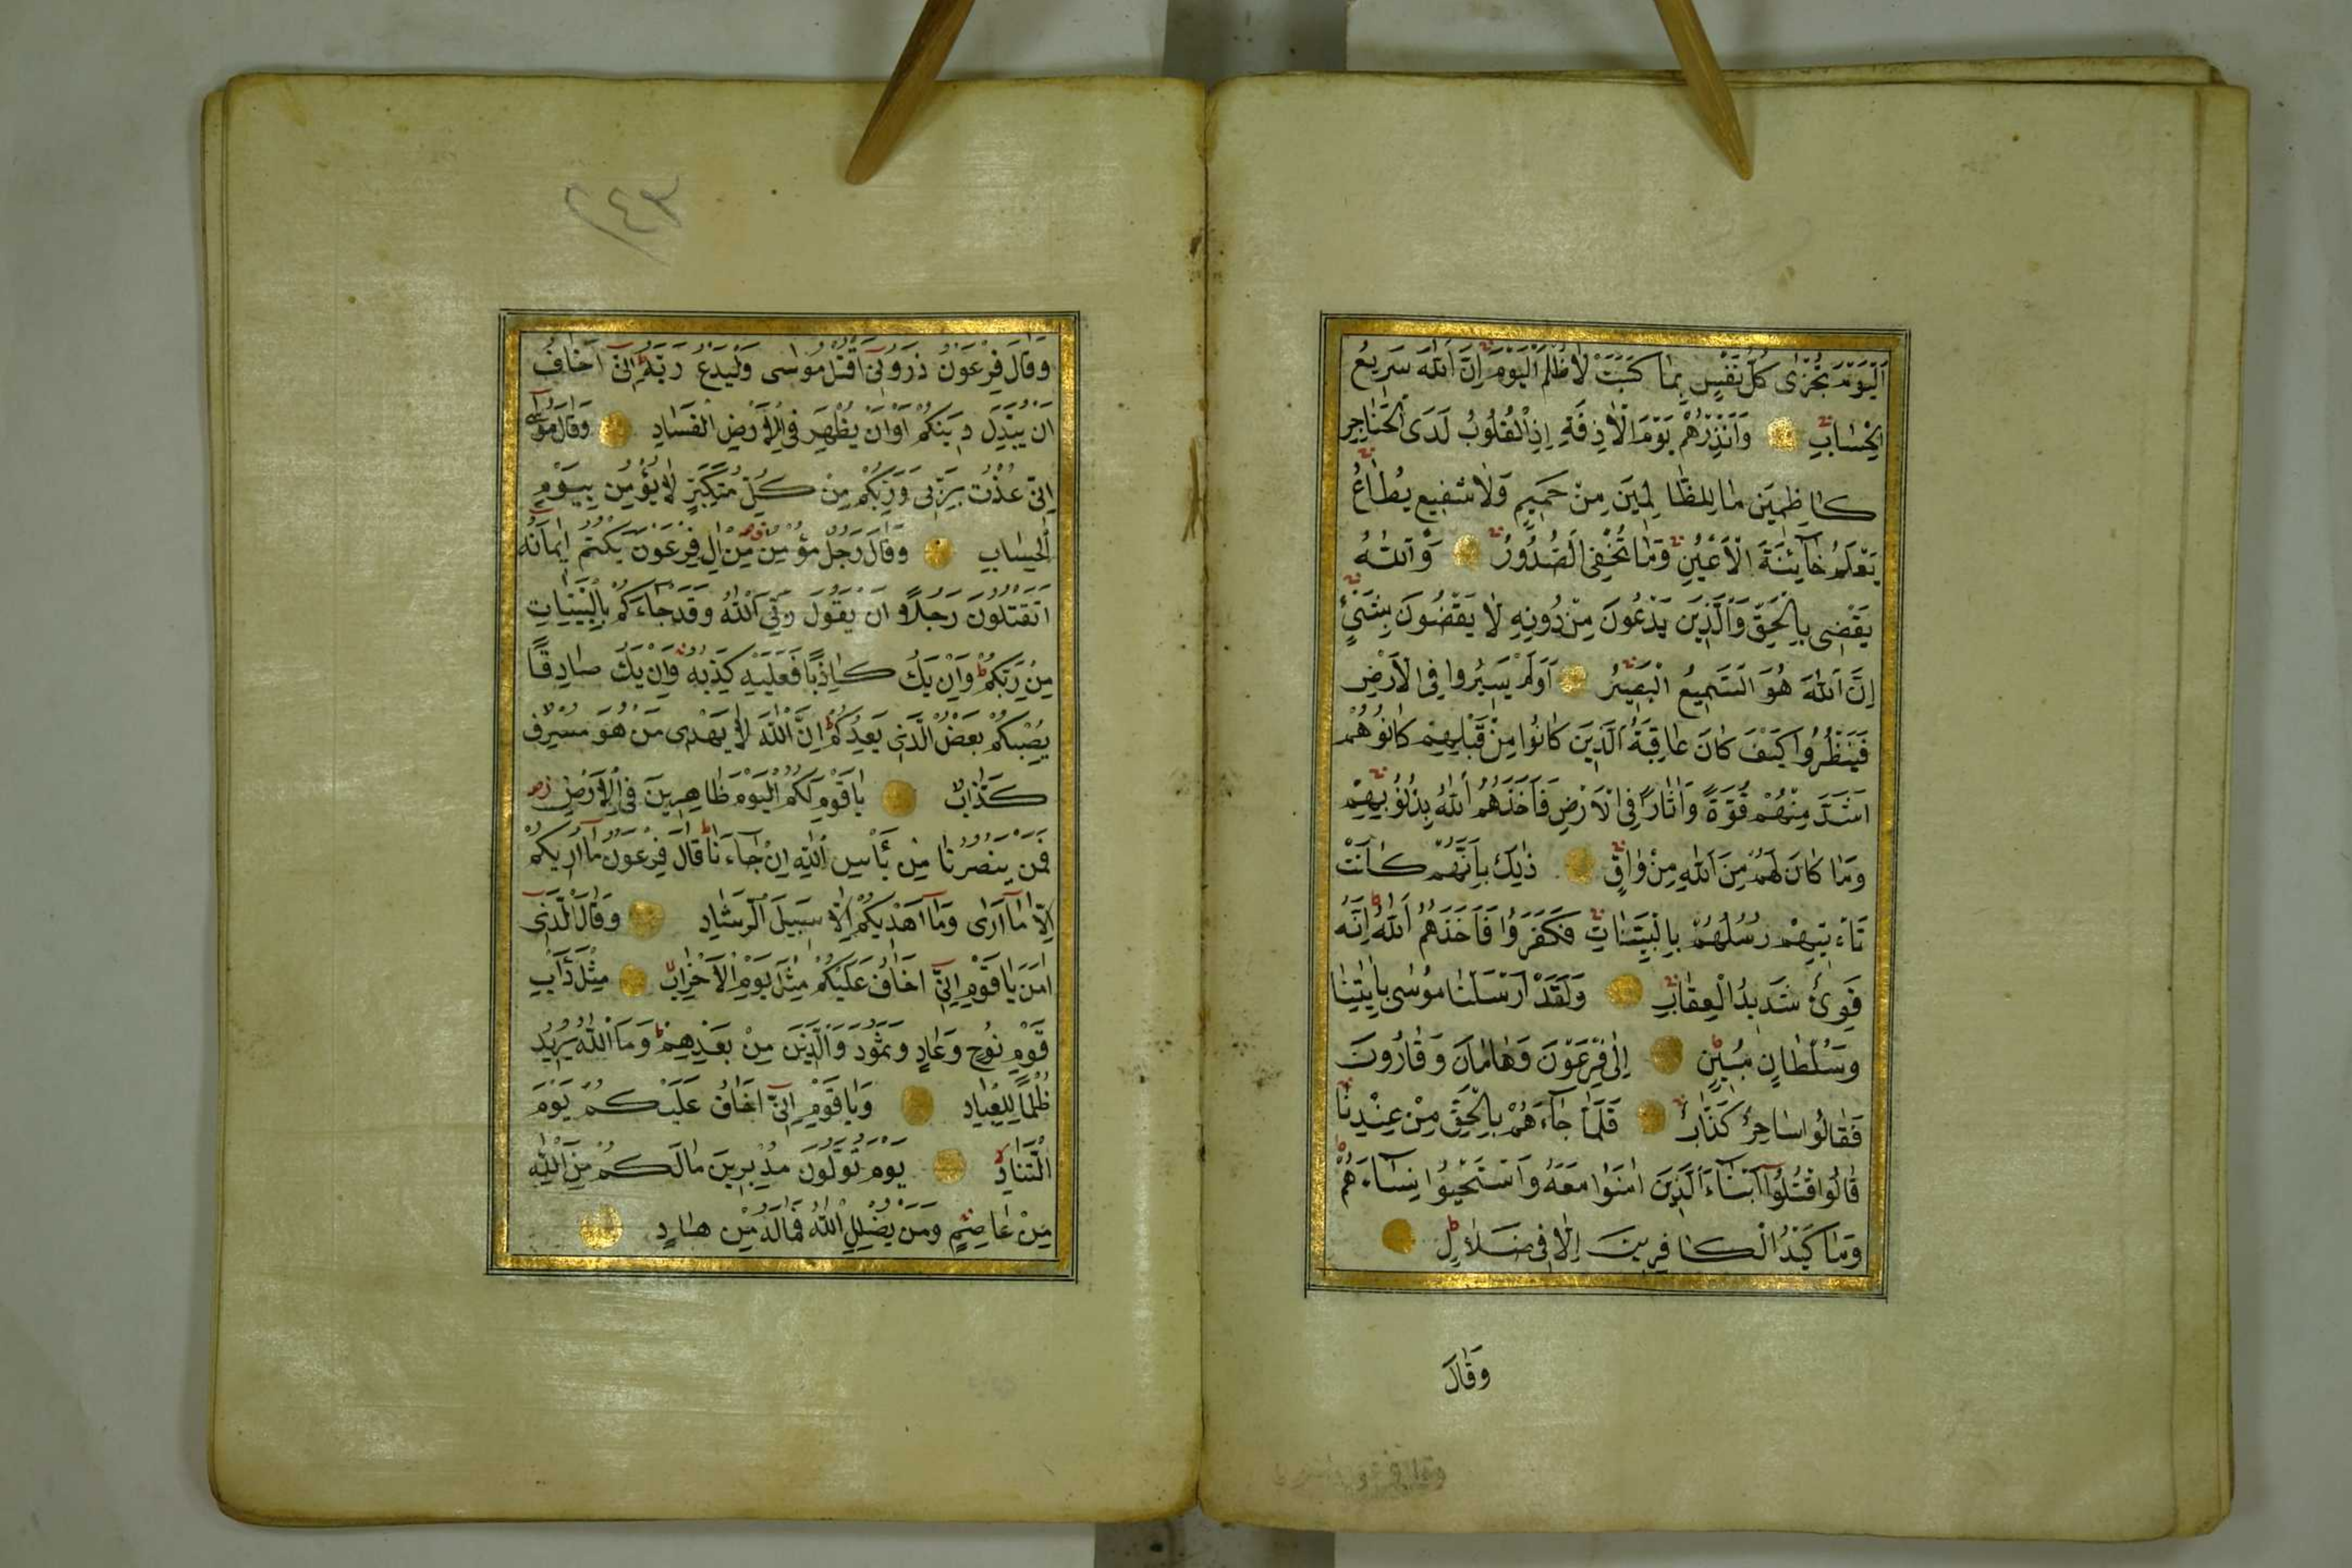 اَلْيَوْمَ تُجْزٰى كُلُّ نَفْسٍ بِمَا كَسَبَتْ لَا ظُلْمَ الْيَوْمَ اِنَّ اللّٰهَ سَرِيعُ
الْحِسَابِ وَاَنْذِرْهُمْ يَوْمَ الْاٰزِفَةِ اِذِ الْقُلُوبُ لَدَى الْحَنَاجِرِ
كَاظِمِينَ مَا لِلظَّالِمِينَ مِنْ حَمِيمٍ وَلَا شَفِيعٍ يُطَاعُ
يَعْلَمُ خَآئِنَةَ الْاَعْيُنِ وَمَا تُخْفِى الصُّدُورُ وَاللّٰهُ
يَقْضِى بِالْحَقِّ وَالَّذِينَ يَدْعُونَ مِنْ دُونِهِ لَا يَقْضُونَ بِشَىْءٍ
اِنَّ اللّٰهَ هُوَ السَّمِيعُ الْبَصِيرُ اَوَلَمْ يَسِيرُوا فِى الْاَرْضِ
فَيَنْظُرُوا كَيْفَ كَانَ عَاقِبَةُ الَّذِينَ كَانُوا مِنْ قَبْلِهِمْ كَانُوا هُمْ
اَشَدَّ مِنْهُمْ قُوَّةً وَاٰثَارًا فِى الْاَرْضِ فَاَخَذَهُمُ اللّٰهُ بِذُنُوبِهِمْ
وَمَا كَانَ لَهُمْ مِنَ اللّٰهِ مِنْ وَاقٍ ذٰلِكَ بِاَنَّهُمْ كَانَتْ
تَاْتِيهِمْ رُسُلُهُمْ بِالْبَيِّنَاتِ فَكَفَرُوا فَاَخَذَهُمُ اللّٰهُ اِنَّهُ
قَوِىٌّ شَدِيدُ الْعِقَابِ وَلَقَدْ اَرْسَلْنَا مُوسٰى بِاٰيَاتِنَا
وَسُلْطَانٍ مُبِينٍ اِلٰى فِرْعَوْنَ وَهَامَانَ وَقَارُونَ
فَقَالُوا سَاحِرٌ كَذَّابٌ فَلَمَّا جَآءَهُمْ بِالْحَقِّ مِنْ عِنْدِنَا
قَالُوا اقْتُلُوا اَبْنَآءَ الَّذِينَ اٰمَنُوا مَعَهُ وَاسْتَحْيُوا نِسَآءَهُمْ
وَمَا كَيْدُ الْكَافِرِينَ اِلَّا فِى ضَلَالٍ
وَقَالَ
٢٤٣
وَقَالَ فِرْعَوْنُ ذَرُونِى اَقْتُلْ مُوسٰى وَلْيَدْعُ رَبَّهُ اِنِّى اَخَافُ
اَنْ يُبَدِّلَ دِينَكُمْ اَوْ اَنْ يُظْهِرَ فِى الْاَرْضِ الْفَسَادَ وَقَالَ مُوسٰى
اِنِّى عُذْتُ بِرَبِّى وَرَبِّكُمْ مِنْ كُلِّ مُتَكَبِّرٍ لَا يُؤْمِنُ بِيَوْمِ
الْحِسَابِ وَقَالَ رَجُلٌ مُؤْمِنٌ مِنْ اٰلِ فِرْعَوْنَ يَكْتُمُ اِيمَانَهُ
اَتَقْتُلُونَ رَجُلًا اَنْ يَقُولَ رَبِّىَ اللّٰهُ وَقَدْ جَآءَكُمْ بِالْبَيِّنَاتِ
مِنْ رَبِّكُمْ وَاِنْ يَكُ كَاذِبًا فَعَلَيْهِ كَذِبُهُ وَاِنْ يَكُ صَادِقًا
يُصِبْكُمْ بَعْضُ الَّذِى يَعِدُكُمْ اِنَّ اللّٰهَ لَا يَهْدِى مَنْ هُوَ مُسْرِفٌ
كَذَّابٌ يَا قَوْمِ لَكُمُ الْمُلْكُ الْيَوْمَ ظَاهِرِينَ فِى الْاَرْضِ
فَمَنْ يَنْصُرُنَا مِنْ بَاْسِ اللّٰهِ اِنْ جَآءَنَا قَالَ فِرْعَوْنُ مَآ اُرِيكُمْ
اِلَّا مَآ اَرٰى وَمَآ اَهْدِيكُمْ اِلَّا سَبِيلَ الرَّشَادِ وَقَالَ الَّذِى
اٰمَنَ يَا قَوْمِ اِنِّى اَخَافُ عَلَيْكُمْ مِثْلَ يَوْمِ الْاَحْزَابِ مِثْلَ دَاْبِ
قَوْمِ نُوحٍ وَعَادٍ وَثَمُودَ وَالَّذِينَ مِنْ بَعْدِهِمْ وَمَا اللّٰهُ يُرِيدُ
ظُلْمًا لِلْعِبَادِ وَيَا قَوْمِ اِنِّى اَخَافُ عَلَيْكُمْ يَوْمَ
التَّنَادِ يَوْمَ تُوَلُّونَ مُدْبِرِينَ مَا لَكُمْ مِنَ اللّٰهِ
مِنْ عَاصِمٍ وَمَنْ يُضْلِلِ اللّٰهُ فَمَا لَهُ مِنْ هَادٍ